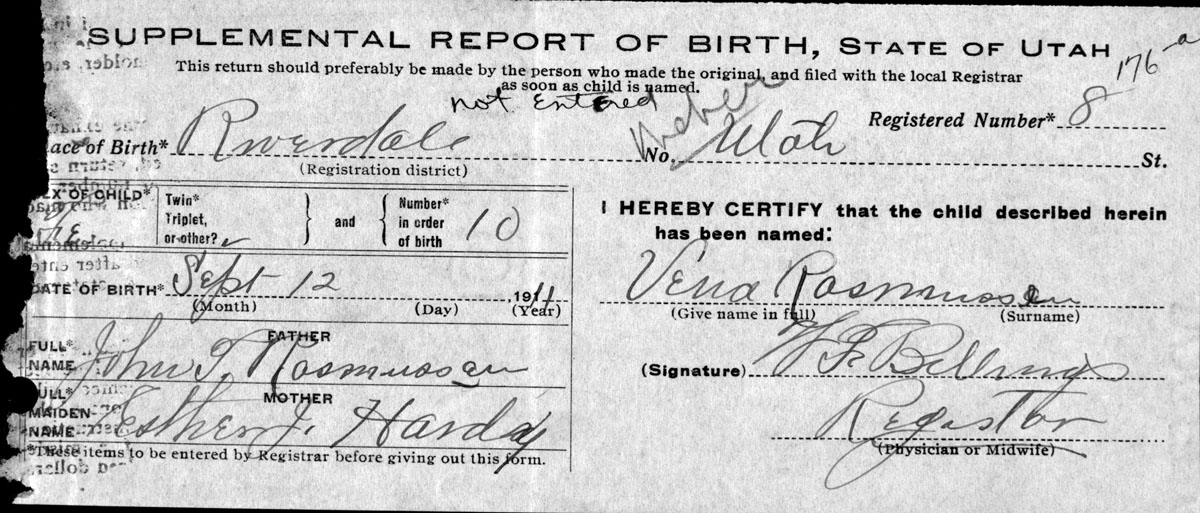 SUPPLEMENTAL REPORT OF BIRTH, STATE OF UTAH
176-a
This return should preferably be made by the person who made the original, and filed with the local Registrar
as soon as child is named.
not Entered
Weber
Registered Number* 8
lace of Birth* Riverdale No. Utah St.
(Registration district)
EX OF CHILD*
Fe
Twin*
Triplet,
or other?
and
Number*
in order
of birth
10
DATE OF BIRTH* Sept 12 1911
(Month) (Day) (Year)
FATHER
FULL*
NAME John T. Rasmussen
MOTHER
ULL*
MAIDEN
NAME Esther J. Hardy
*These items to be entered by Registrar before giving out this form.
I HEREBY CERTIFY that the child described herein
has been named:
Vena Rasmussen
(Give name in full) (Surname)
(Signature) W F Billings
Registrar
(Physician or Midwife)